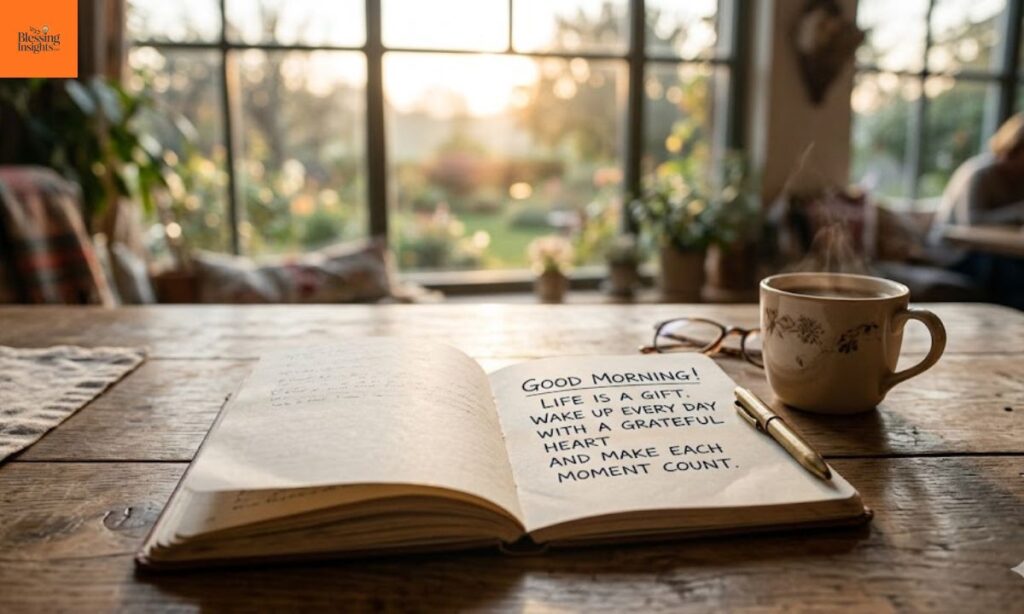 Blessing
Insights
GOOD MORNING!
LIFE IS A GIFT.
WAKE UP EVERY DAY
WITH A GRATEFUL
HEART
AND MAKE EACH
MOMENT COUNT.